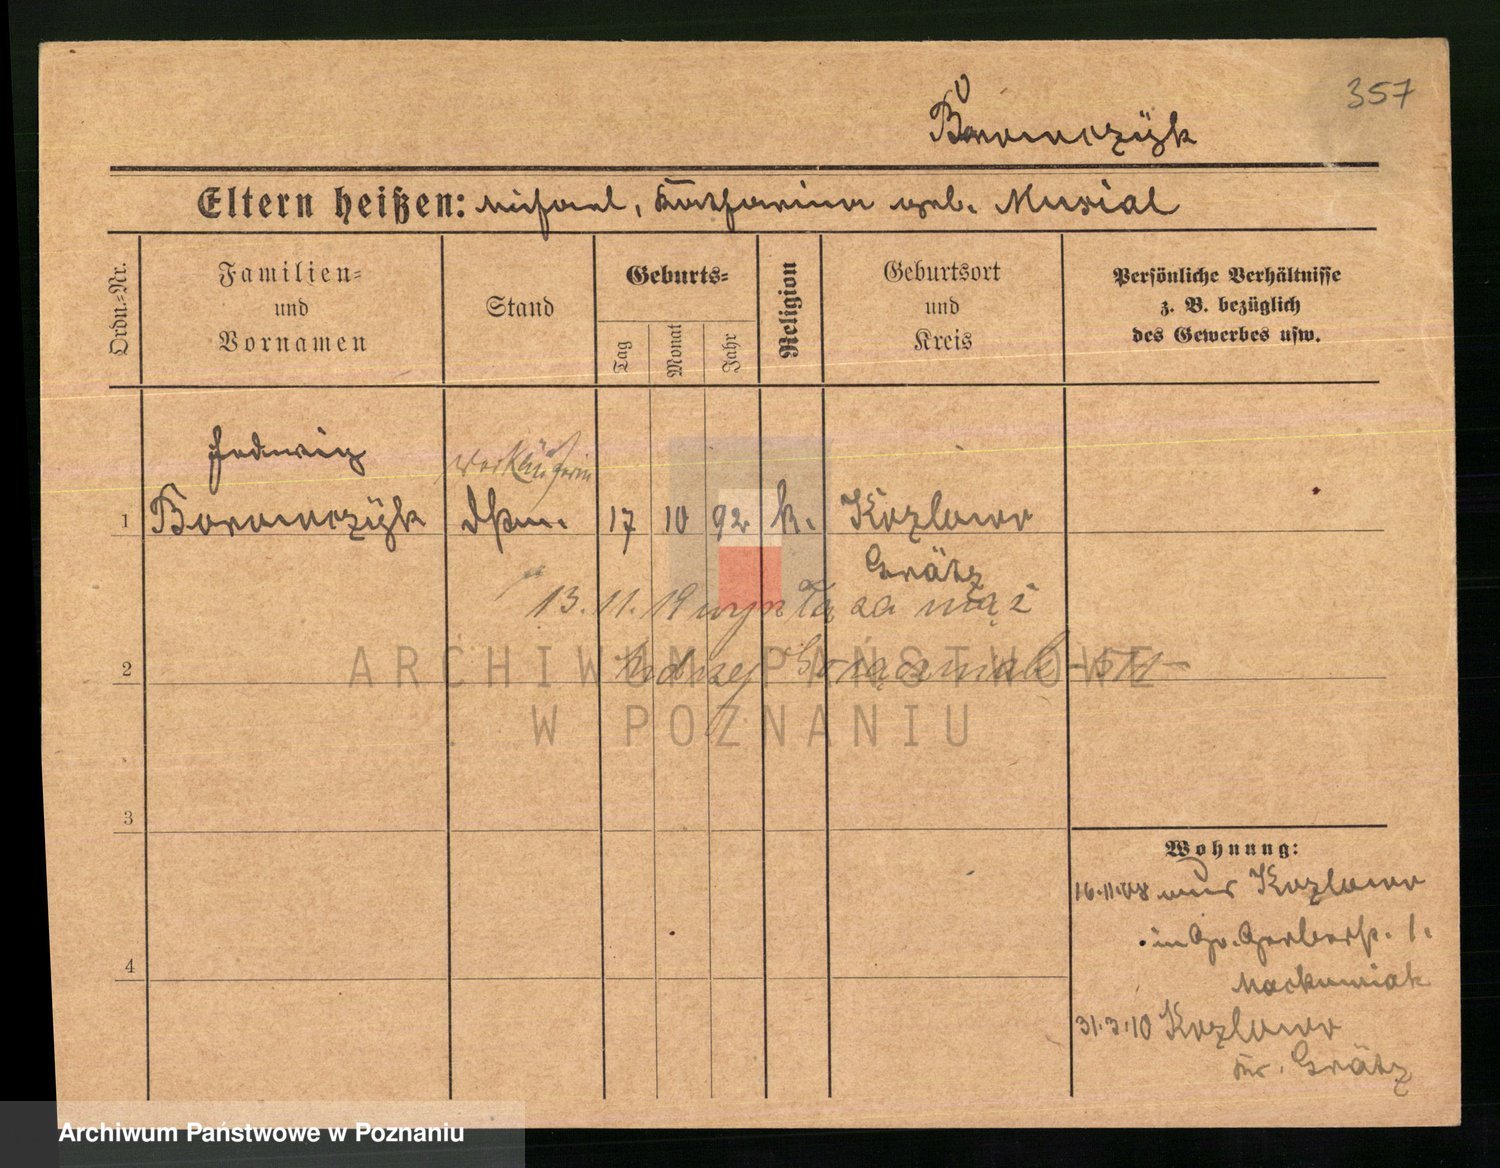 357
Borowczÿk
Eltern heißen: Michael, Katharina geb. Musial
Ordn.-Nr.
Familien- und Vornamen
Stand
Geburts-
Tag
Monat
Jahr
Religion
Geburtsort und Kreis
Persönliche Verhältnisse z. B. bezüglich des Gewerbes usw.
Hedwig
Verkäuferin
1 Borowczÿk 17 10 92 k. Kozlowo
Grätz
13.11.19 wyszła za mąż
2 Andrzej
ARCHIWUM PAŃSTWOWE
W POZNANIU
3
Wohnung:
16.11.08 aus Kozlowo
in Gr. Gerberstr. 1.
Mackowiak
4
31.3.10 Kozlowo
Kr. Grätz
Archiwum Państwowe w Poznaniu